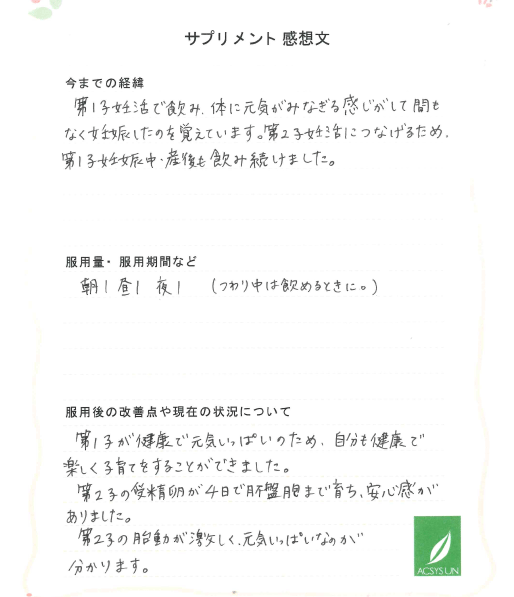 サプリメント 感想文
今までの経緯
第1子妊活で飲み、体に元気がみなぎる感じがして間も
なく妊娠したのを覚えています。第2子妊活につなげるため、
第1子妊娠中・産後も飲み続けました。
服用量・服用期間など
朝1 昼1 夜1 (つわり中は飲めるときに。)
服用後の改善点や現在の状況について
第1子が健康で元気いっぱいのため、自分も健康で
楽しく子育てをすることができました。
第2子の受精卵が4日で胚盤胞まで育ち、安心感が
ありました。
第2子の胎動が激しく、元気いっぱいなのが
分かります。
ACSYSUN